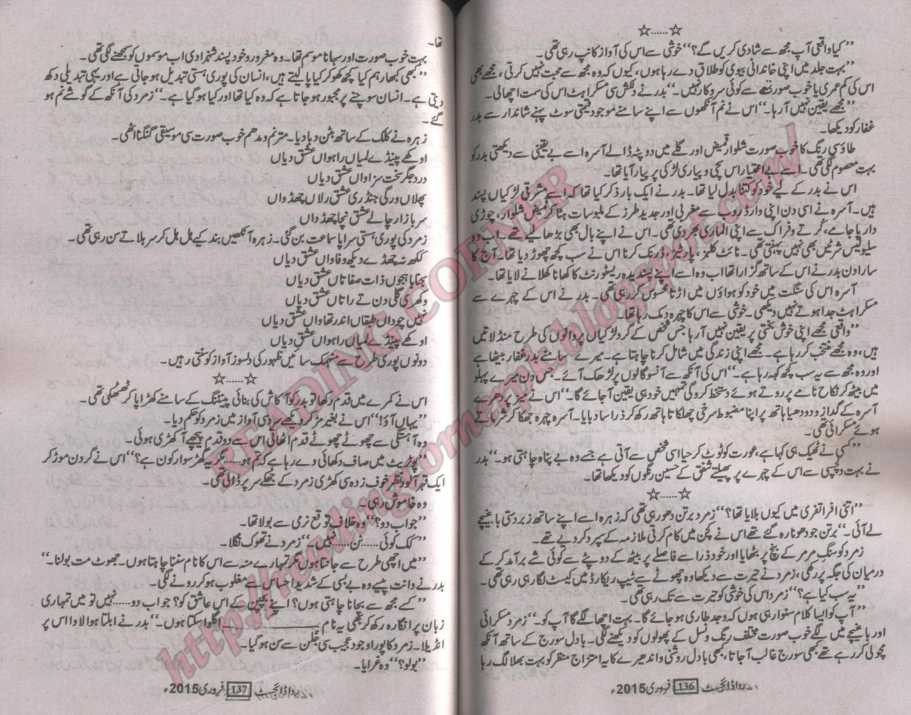 ☆......☆
”کیا واقعی آپ مجھ سے شادی کریں گے؟“ خوشی سے اس کی آواز کانپ رہی تھی۔
”بہت جلد میں اپنی خاندانی بیوی کو طلاق دے رہا ہوں، کیوں کہ وہ مجھ سے محبت نہیں کرتی، مجھے بھی
اس کی کم عمری یا خوب صورتی سے کوئی سروکار نہیں۔“ بدر نے دلکش سی مسکراہٹ اس کی سمت اچھالی۔
”مجھے یقین نہیں آ رہا۔“ اس نے نم آنکھوں سے اپنے سامنے موجود قیمتی سوٹ پہنے شاندار سے بدر
غفار کو دیکھا۔
طاؤسی رنگ کا خوب صورت شلوار قمیض اور گلے میں دوپٹہ ڈالے آسرہ اسے بے یقینی سے دیکھتی بدر کو
بہت معصوم لگی تھی۔ اسے بے اختیار اس پیاری لڑکی پر پیار آیا تھا۔
اس نے بدر کے لیے خود کو کتنا بدل لیا تھا۔ بدر نے ایک بار ذکر کیا تھا کہ اسے مشرقی لڑکیاں پسند
ہیں۔ آسرہ نے اسی دن اپنی وارڈ روب سے مغربی اور جدید طرز کے ملبوسات ہٹا کر قمیض شلوار، چوڑی
دار پاجامے، کرتے و فراک سے اپنی الماری بھر دی تھی۔ اس نے اپنے بال بھی بڑھا لیے تھے۔ اب وہ
سلیولیس شرٹس بھی نہیں پہنتی تھی۔ نائٹ کلبز، پارٹیز، ڈرنک کرنا اس نے سب کچھ چھوڑ دیا تھا۔ آج کا
سارا دن بدر نے اس کے ساتھ گزارا تھا اب وہ اسے اپنے پسندیدہ ریسٹورنٹ کا کھانا کھلانے لایا تھا۔
آسرہ اس کی سنگت میں خود کو ہواؤں میں اڑتا محسوس کر رہی تھی۔ بدر نے اس کے چہرے سے
مسکراہٹ جدا ہوتے نہیں دیکھی۔ خوشی سے اس کا چہرہ دمک رہا تھا۔
”واقعی مجھے اپنی خوش بختی پر یقین نہیں آ رہا جس شخص کے گرد لڑکیاں پروانوں کی طرح منڈلاتی
ہیں، وہ مجھے منتخب کر رہا ہے۔ مجھے اپنی زندگی میں شامل کرنا چاہتا ہے۔ میرے سامنے بدر غفار بیٹھا ہے
اور وہ مجھ سے یہ سب کچھ کہہ رہا ہے۔“ اس کی آنکھ سے آنسو گالوں پر لڑھک آئے۔ جس دن میرے پہلو
میں بیٹھ کر نکاح نامے پر روتے ہوئے دستخط کرو گی تمہیں خود ہی یقین آ جائے گا۔“ اس نے ٹیبل پر دھرے
آسرہ کے گداز دودھیا ہاتھ پر اپنا مضبوط ہاتھ رکھ کر ذرا سا دبایا۔ آسرہ چہرہ جھکا کر شرماتے
ہوئے مسکرائی تھی۔
”کسی نے ٹھیک ہی کہا ہے، عورت کو ٹوٹ کر حیا اسی شخص سے آتی ہے جسے وہ بے پناہ چاہتی ہو۔“ بدر
نے بہت دلچسپی سے اس کے چہرے پر پھیلتے شفق کے حسین رنگوں کو دیکھا تھا۔
☆......☆
”اتنی افراتفری میں کیوں بلایا تھا؟“ زمرد برتن دھو رہی تھی کہ زہرہ اسے اپنے ساتھ زبردستی باغیچے
لے آئی۔ ”برتن جو دھونا رہ گئے تھے اس نے پکن میں کام کرتی ملازمہ کے سپرد کر دیے تھے۔
زمرد کو سنگِ مرمر کے بنچ پر بٹھایا اور خود ذرا سے فاصلے پر بیٹھ کے دوپٹے سے کوئی شے برآمد کر کے
درمیان کی جگہ پر رکھی، زمرد نے حیرت سے دیکھا وہ چھوٹے سے ٹیپ ریکارڈ میں کیسٹ لگا رہی تھی۔
”یہ سب کیا ہے؟“ زمرد اس کی خوشی کو حیرت سے تک رہی تھی۔
”آپ کو ایسا کلام سنوا رہی ہوں کہ وجد طاری ہو جائے گا۔ بہت اچھا لگے گا آپ کو۔“ زمرد مسکرائی
اور باغیچے میں لگے خوب صورت مختلف رنگ و نسل کے پھولوں کو دیکھنے لگی۔ بادل سورج کے ساتھ آنکھ
مچولی کر رہے تھے، کبھی سورج غالب آ جاتا، کبھی بادل روشنی و اندھیرے کا یہ امتزاج منظر کو بہت بھلا لگ رہا
ردا ڈائجسٹ 136 فروری 2015ء
تھا۔
بہت خوب صورت اور سہانا موسم تھا۔ وہ مغرور و خود پسند شہزادی اب موسموں کو سمجھنے لگی تھی۔
”کبھی کبھار ہم کیا کچھ کھو کر کیا پا لیتے ہیں، انسان کی پوری ہستی تبدیل ہو جاتی ہے اور یہی تبدیلی دکھ
دیتی ہے۔ انسان سوچنے پر مجبور ہو جاتا ہے کہ وہ کیا تھا اور کیا ہو گیا ہے۔“ زمرد کی آنکھ کے گوشے نم ہو
گئے۔
زہرہ نے کلک کے ساتھ بٹن دبا دیا۔ مترنم و مدھم خوب صورت سی موسیقی گنگنا اٹھی۔
اوکھے پینڈے لمیاں راہواں عشق دیاں
درد جگر سخت سزاواں عشق دیاں
پھلاں ورگی جندڑی عشق رلا چھڈدا
سر بازار چا عشق نچا چھڈدا
زمرد کی پوری ہستی سراپا سماعت بن گئی۔ زہرہ آنکھیں بند کیے ہل ہل کر سر ہلاتے سن رہی تھی۔
ککھ نہ چھڈے دیکھ وفاواں عشق دیاں
سجناں باہجوں ذات صفاتاں عشق دیاں
وکھری کلی دن تے راتاں عشق دیاں
نہیں چوداں طبقاں اندر تھاواں عشق دیاں
اوکھے پینڈے لمیاں راہواں عشق دیاں
دونوں پوری طرح سے منہمک سائیں ظہور کی دلسوز آواز کو سنتی رہیں۔
☆......☆
اس نے کمرے میں قدم رکھا تو بدر کو آکاش کی بنائی پینٹنگ کے سامنے کھڑا پا کر ٹھٹھک گئی تھی۔
”یہاں آؤ!“ اس نے بغیر مڑ کر دیکھے سرد سی آواز میں زمرد کو حکم دیا۔
وہ آہستگی سے چھوٹے چھوٹے قدم اٹھاتی اس سے دو قدم پیچھے آ کھڑی ہوئی۔
”پورٹریٹ میں صاف دکھائی دے رہا ہے کہ تم ہو۔ مگر یہ گھڑ سوار کون ہے؟“ اس نے گردن موڑ کر
ایک قہر آلود نظر خوف زدہ سی کھڑی زمرد کے جھکے سر پر ڈالی تھی۔
وہ خاموش رہی۔
”جواب دو؟“ وہ خلاف توقع نرمی سے بولا تھا۔
”کک کوئی...... نن...... نہیں۔“ زمرد نے تھوک نگلا۔
”میں اچھی طرح سے جانتا ہوں مگر تمہارے منہ سے اس کا نام سننا چاہتا ہوں۔ جھوٹ مت بولنا۔“
بدر نے دانت پیسے وہ بے بسی کے شدید احساس سے مغلوب ہو کر رونے لگی۔
”کسے مجھ سے بچانا چاہتی ہوں؟ اپنے بچپن کے اس عاشق کو؟ جواب دو...... نہیں تو میں تمہاری
زبان پر انگارہ رکھ کر بھی یہ نام اگلوا سکتا ہوں۔“ بدر نے ابلتا ہوا لاوا اس پر
انڈیلا۔ زمرد کا پورا وجود عجیب سی جلن سے سن ہو گیا۔
”بولو؟“ وہ غرایا۔
ردا ڈائجسٹ 137 فروری 2015ء
READING CORNER